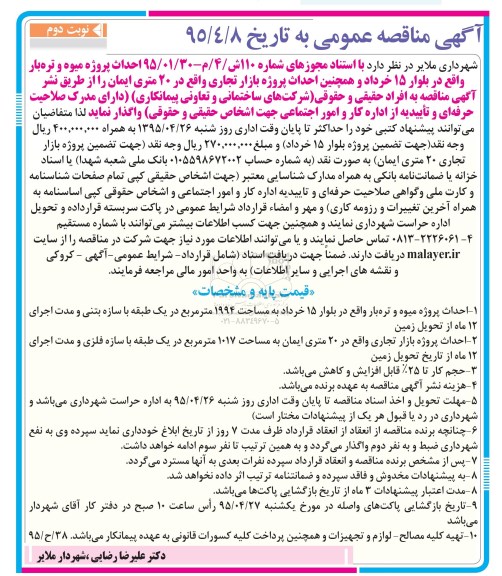 نوبت دوم
آگهی مناقصه عمومی به تاریخ ۹۵/۴/۸
شهرداری ملایر در نظر دارد با استناد مجوزهای شماره ۱۱۰ش/۴/م-۹۵/۰۱/۳۰ احداث پروژه میوه و تره‌بار
واقع در بلوار ۱۵ خرداد و همچنین احداث پروژه بازار تجاری واقع در ۲۰ متری ایمان را از طریق نشر
آگهی مناقصه به افراد حقیقی و حقوقی(شرکت‌های ساختمانی و تعاونی پیمانکاری) (دارای مدرک صلاحیت
حرفه‌ای و تأییدیه از اداره کار و امور اجتماعی جهت اشخاص حقیقی و حقوقی) واگذار نماید لذا متقاضیان
می‌توانند پیشنهاد کتبی خود را حداکثر تا پایان وقت اداری روز شنبه ۱۳۹۵/۰۴/۲۶ به همراه ۴۰۰,۰۰۰,۰۰۰ ریال
وجه نقد(جهت تضمین پروژه بلوار ۱۵ خرداد) و مبلغ۲۷۰,۰۰۰,۰۰۰ ریال وجه نقد (جهت تضمین پروژه بازار
تجاری ۲۰ متری ایمان) به صورت نقد (به شماره حساب ۰۱۰۵۵۹۸۶۷۲۰۰۲ بانک ملی شعبه شهدا) یا اسناد
خزانه یا ضمانت‌نامه بانکی به همراه مدارک شناسایی معتبر (جهت اشخاص حقیقی کپی تمام صفحات شناسنامه
و کارت ملی وگواهی صلاحیت حرفه‌ای و تاییدیه اداره کار و امور اجتماعی و اشخاص حقوقی کپی اساسنامه به
همراه آخرین تغییرات و رزومه کاری) و مهر و امضاء قرارداد شرایط عمومی در پاکت سربسته قرارداده و تحویل
اداره حراست شهرداری نمایند و همچنین جهت کسب اطلاعات بیشتر می‌توانند با شماره مستقیم
۴-۰۸۱۳-۲۲۲۶۰۶۱ تماس حاصل نمایند و یا می‌توانند اطلاعات مورد نیاز جهت شرکت در مناقصه را از سایت
malayer.ir دریافت دارند. ضمناً جهت دریافت اسناد (شامل قرارداد- شرایط عمومی-آگهی - کروکی
و نقشه های اجرایی و سایر اطلاعات) به واحد امور مالی مراجعه فرمایند.
«قیمت پایه و مشخصات»
۱-احداث پروژه میوه و تره‌بار واقع در بلوار ۱۵ خرداد به مساحت ۱۹۹۴ مترمربع در یک طبقه با سازه بتنی و مدت اجرای
۱۲ ماه از تحویل زمین
۲-احداث پروژه بازار تجاری واقع در ۲۰ متری ایمان به مساحت ۱۰۱۷ مترمربع در یک طبقه با سازه فلزی و مدت اجرای
۱۲ ماه از تاریخ تحویل زمین
۳-حجم کار تا ۲۵٪ قابل افزایش و کاهش می‌باشد.
۴-هزینه نشر آگهی مناقصه به عهده برنده می‌باشد.
۵-مهلت تحویل و اخذ اسناد مناقصه تا پایان وقت اداری روز شنبه ۹۵/۰۴/۲۶ به اداره حراست شهرداری می‌باشد و
شهرداری در رد یا قبول هر یک از پیشنهادات مختار است)
۶-چنانچه برنده مناقصه از انعقاد از انعقاد قرارداد ظرف مدت ۷ روز از تاریخ ابلاغ خودداری نماید سپرده وی به نفع
شهرداری ضبط و به نفر دوم واگذار می‌گردد و به همین ترتیب تا نفر سوم ادامه خواهد داشت.
۷-پس از مشخص برنده مناقصه و انعقاد قرارداد سپرده نفرات بعدی به آنها مسترد می‌گردد.
۸-به پیشنهادات مخدوش و فاقد سپرده و ضمانتنامه ترتیب اثر داده نخواهد شد.
۸-مدت اعتبار پیشنهادات ۳ ماه از تاریخ بازگشایی پاکت‌ها می‌باشد.
۹-تاریخ بازگشایی پاکت‌های واصله در مورخ یکشنبه ۹۵/۰۴/۲۷ رأس ساعت ۱۰ صبح در دفتر کار آقای شهردار
می‌باشد
۱۰-تهیه کلیه مصالح- لوازم و تجهیزات و همچنین پرداخت کلیه کسورات قانونی به عهده پیمانکار می‌باشد. ۳۸/ح/۹۵
دکتر علیرضا رضایی ،شهردار ملایر